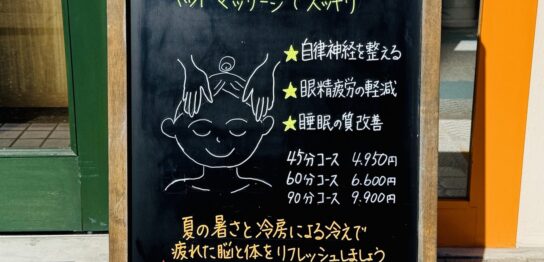 ヘッドマッサージでスッキリ
★自律神経を整える
★眼精疲労の軽減
★睡眠の質改善
45分コース 4.950円
60分コース 6.600円
90分コース 9.900円
夏の暑さと冷房による冷えで
疲れた脳と体をリフレッシュしましょう